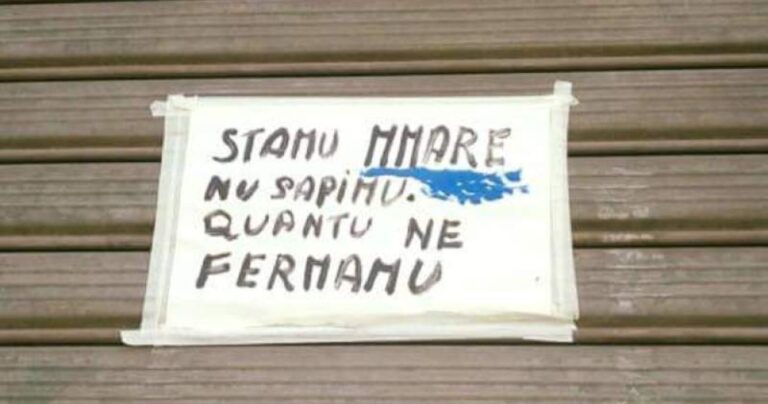 STAMU MMARE
NU SAPIMU.
QUANTU NE
FERMAMU